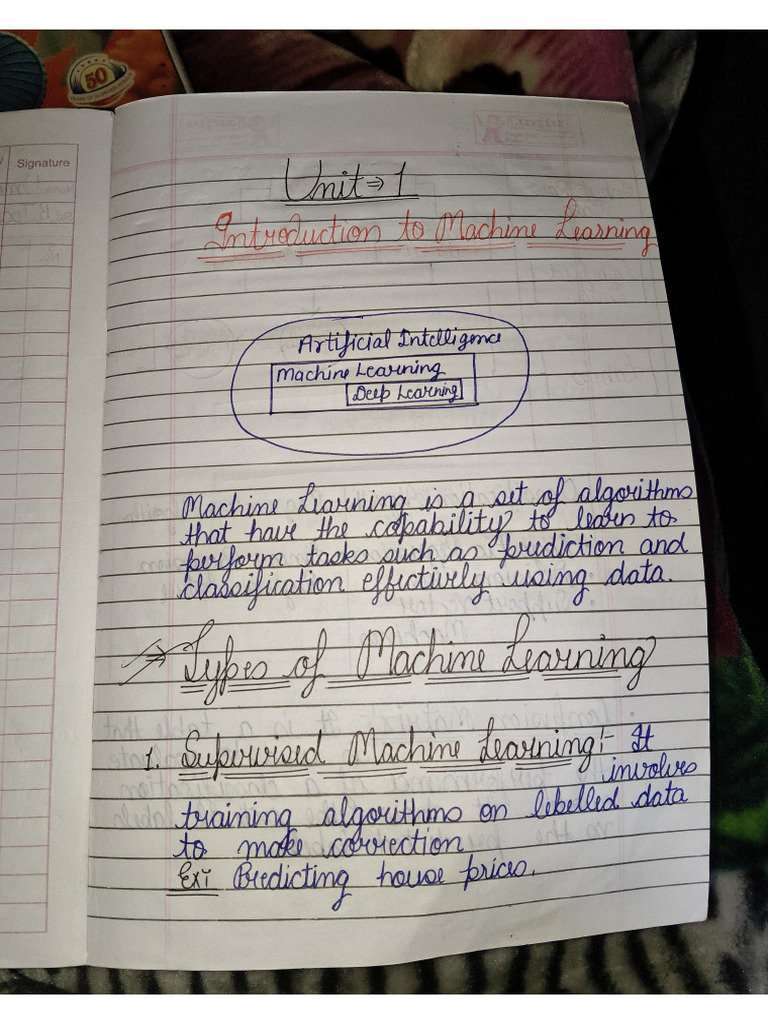 50
Signature
Unit ⇒ 1
Introduction to Machine Learning
Artificial Intelligence
Machine Learning
Deep Learning
Machine Learning is a set of algorithms
that have the capability to learn to
perform tasks such as prediction and
classification effectively using data.
⇒ Types of Machine Learning
1. Supervised Machine Learning:- It
involves
training algorithms on labelled data
to make correction
Ex: Predicting house prices.